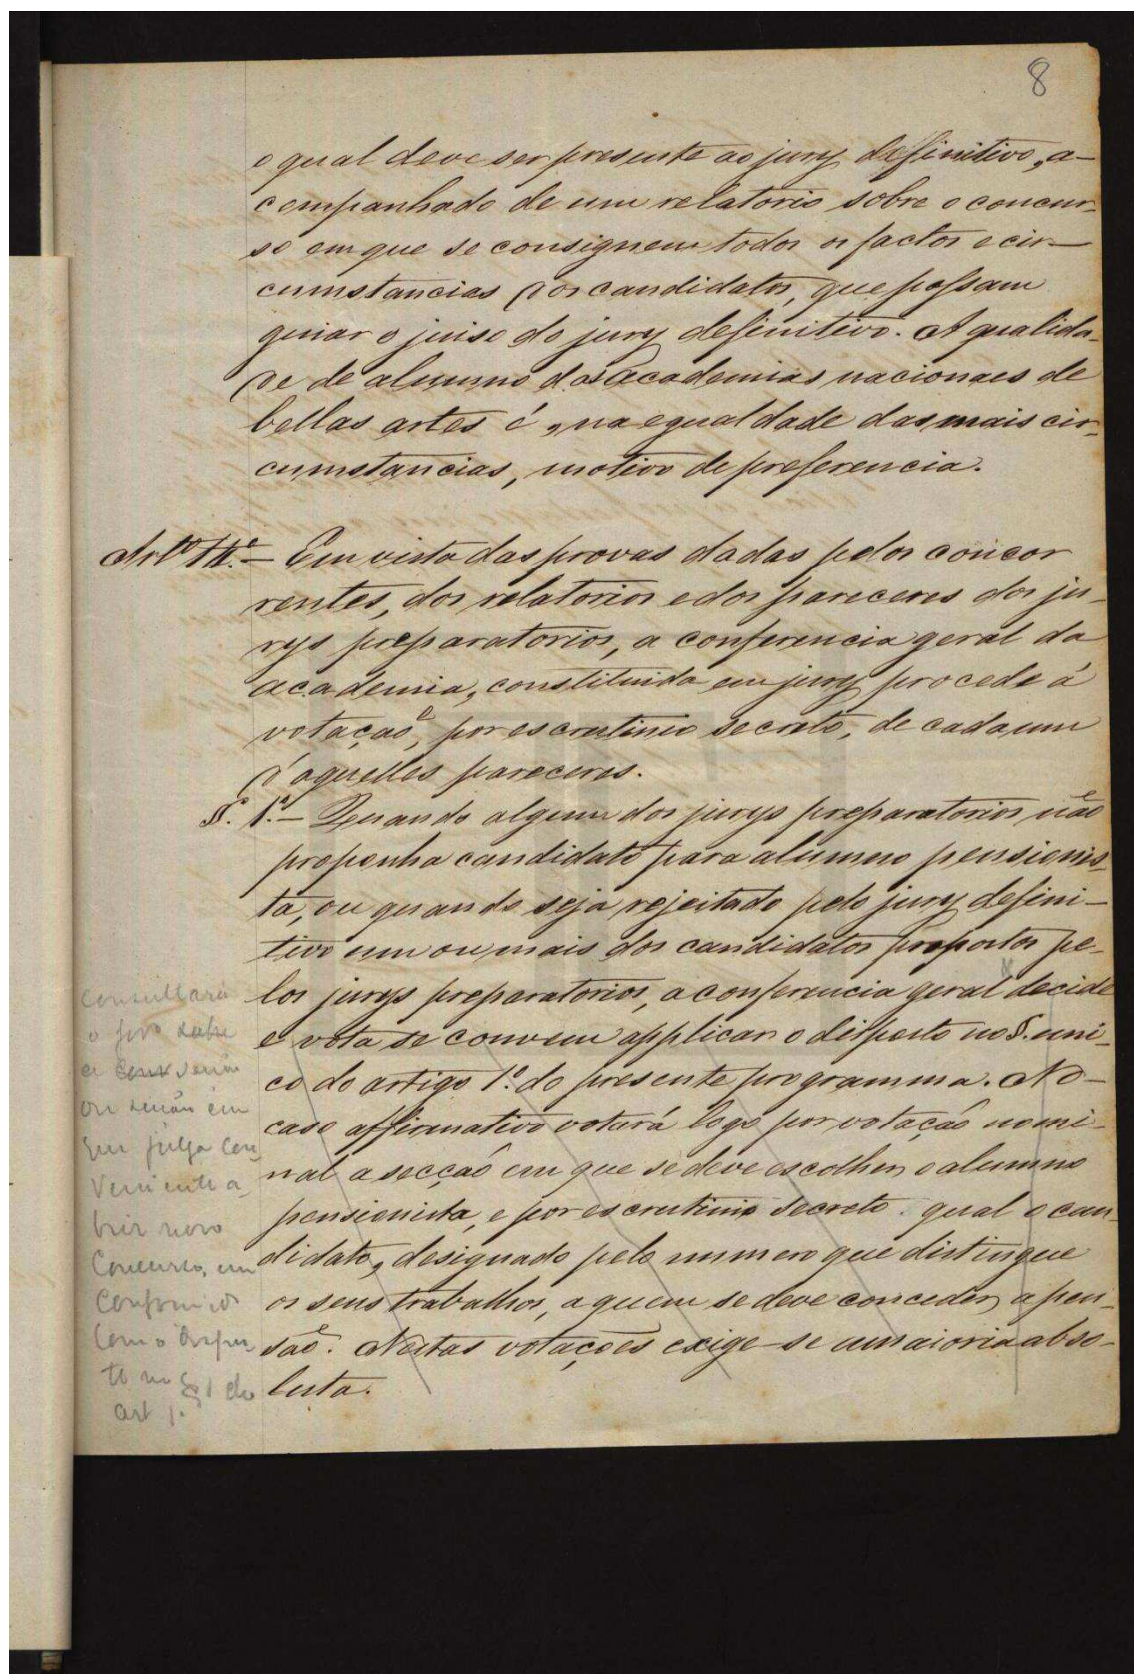 8
o qual deve ser presente ao jury definitivo, a-
companhado de um relatorio sobre o concur-
so em que se consignem todos os factos e cir-
cumstancias dos candidatos, que possam
guiar o juiso do jury definitivo. A qualida-
de de alumno das academias nacionaes de
bellas artes é, na egualdade das mais cir-
cumstancias, motivo de preferencia.
Artº 14.º — Em vista das provas dadas pelos concor
rentes, dos relatorios e dos pareceres dos ju-
rys preparatorios, a conferencia geral da
academia, constituida em jury procede á
votação, por escrutinio secreto, de cada um
d'aquelles pareceres.
§. 1.º — Quando algum dos jurys preparatorios não
proponha candidato para alumno pensionis-
ta, ou quando seja rejeitado pelo jury defini-
tivo um ou mais dos candidatos propostos pe-
los jurys preparatorios, a conferencia geral decide
e vota se convem applicar o disposto no §. uni-
co do artigo 1.º do presente programma. No-
caso affirmativo votará logo por votação nomi-
nal a secção em que se deve escolher o alumno
pensionista, e por escrutinio secreto. qual o can-
didato, designado pelo numero que distingue
os seus trabalhos, a quem se deve conceder a pen-
são. Nestas votações exige-se umaioria abso-
luta.
Consultará
o sobre
a
ou senão em
que julga con
veniente a
brir novo
Concurso, em
conformid
com o dispos
to no § 1 do
art 1.º